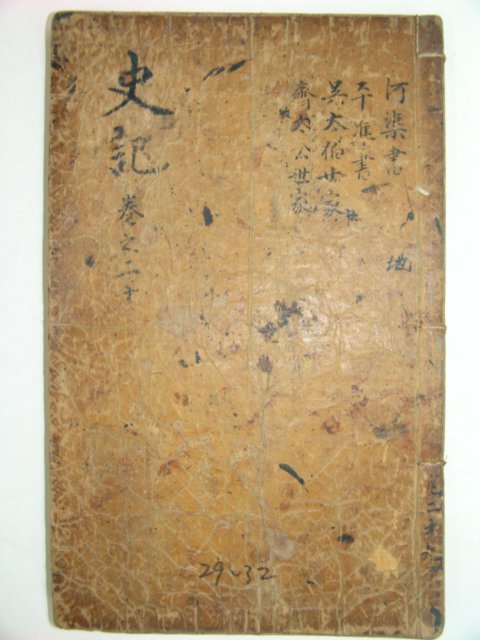 河渠書
平準書
吳太伯世家
齊太公世家
地
史記
卷之二十
29、32